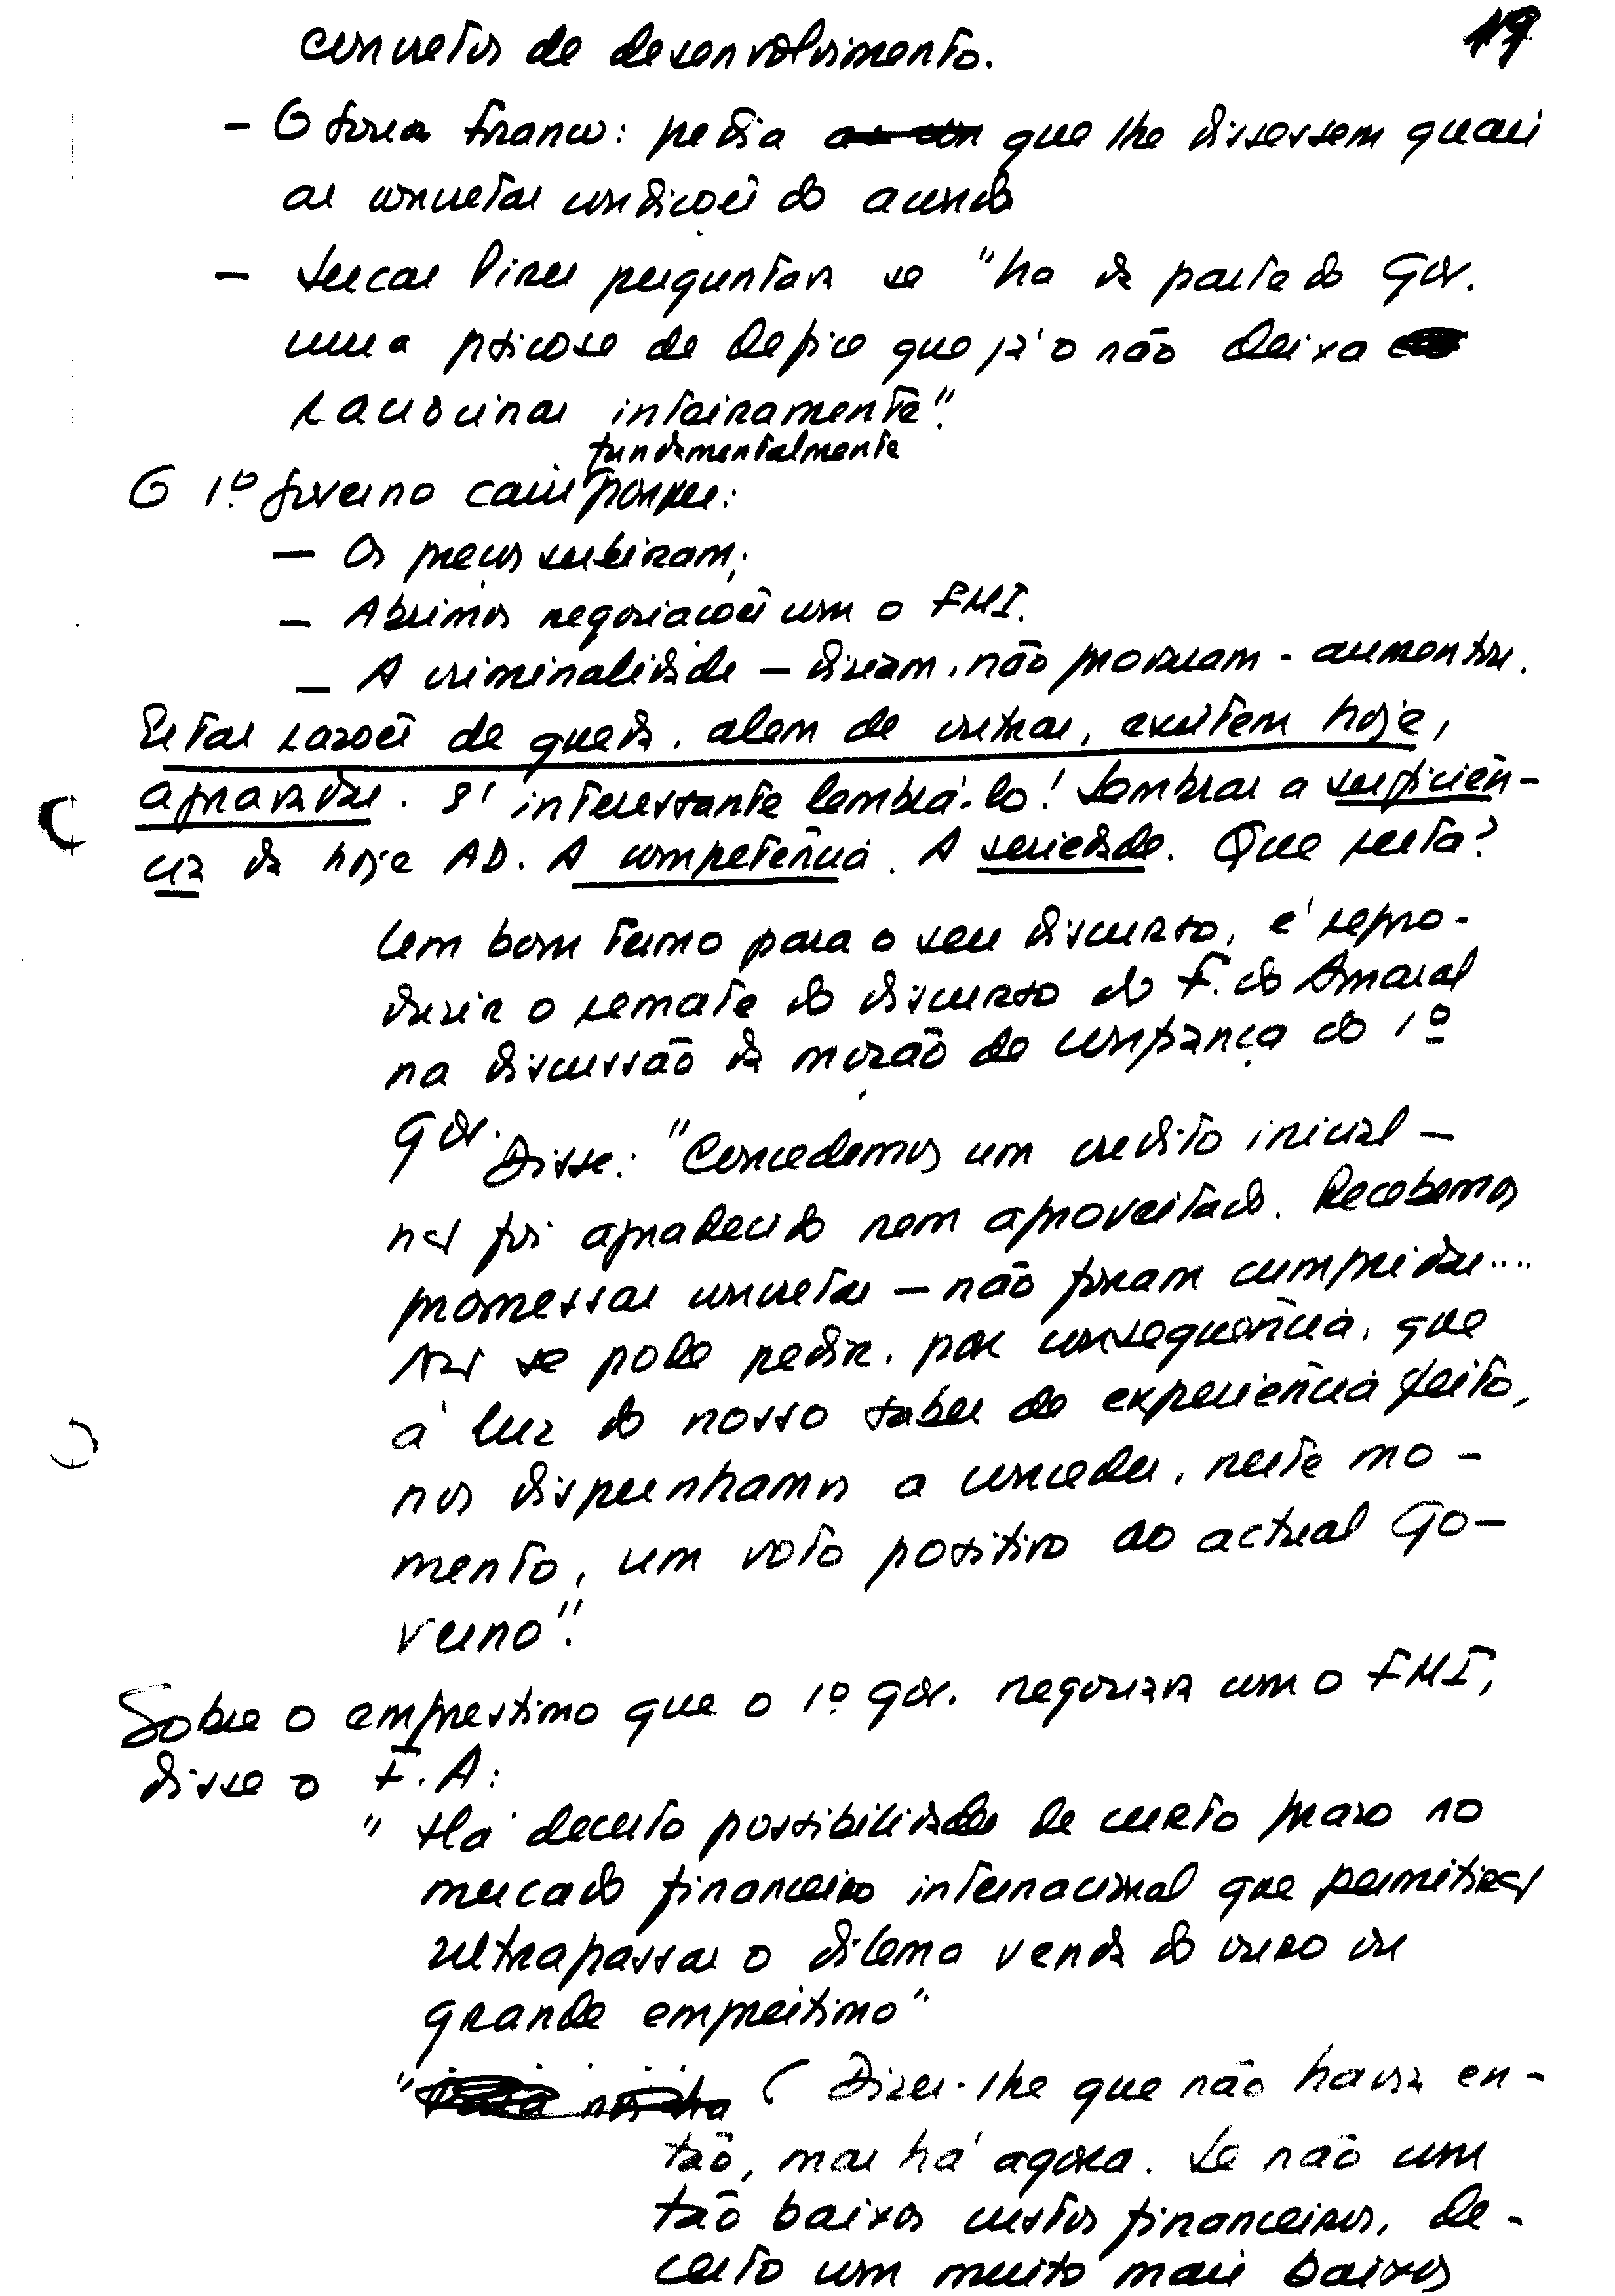 19
concretos de desenvolvimento.
- O Sousa Franco: pedia que lhe dissessem quais
as concretas condições do acordo
- Lucas Pires perguntava se "ha da parte do Gov.
uma psicose de defice que já o não deixa
raciocinar inteiramente".
fundamentalmente
O 1.º Governo caiu porque:
- Os preços subiram;
- Abrimos negociações com o FMI.
- A criminalidade - diziam, não provaram - aumentou.
Estas razões de queda, alem de outras, existem hoje,
agravadas. É interessante lembrá-lo! Lembrar a suficiên-
cia da hoje AD. A competência. A seriedade. Que resta?
Um bom termo para o seu discurso, é repro-
duzir o remate do discurso do F. do Amaral
na discussão da moção de confiança do 1º
Gov.
Disse: "Concedemos um credito inicial -
não foi agradecido nem aproveitado. Recebemos
promessas concretas - não foram cumpridas....
Não se pode pedir, por consequência, que
á luz do nosso saber de experiência feito,
nos disponhamos a conceder, neste mo-
mento, um voto positivo ao actual Go-
verno".
Sobre o emprestimo que o 1º gov. negociava com o FMI,
disse o F. A:
"Há decerto possibilidades de curto prazo no
mercado financeiro internacional que permitirão
ultrapassar o dilema venda do ouro ou
grande empréstimo"
" (Dizer-lhe que não havia en-
tão, mas há agora. Se não com
tão baixos custos financeiros, de-
certo com muito mais baixos